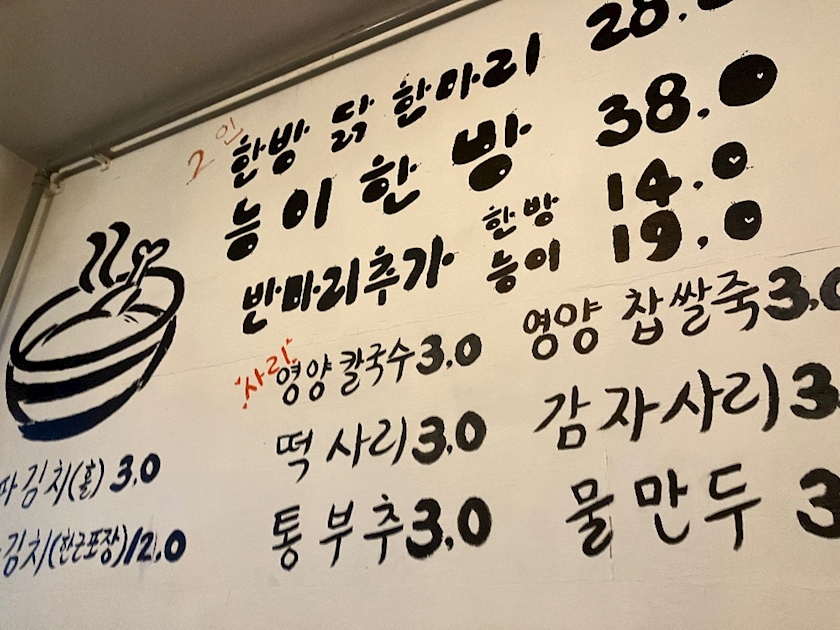 2인 한방 닭 한마리 28.
능이 한 방 38.0
반마리추가 한방 14.0
능이 19.0
"사리" 영양칼국수 3,0 영양 찹쌀죽 3,0
떡 사리 3,0 감자사리 3
통부추 3,0 물만두 3
파김치(홀) 3,0
김치(한근포장) 12,0